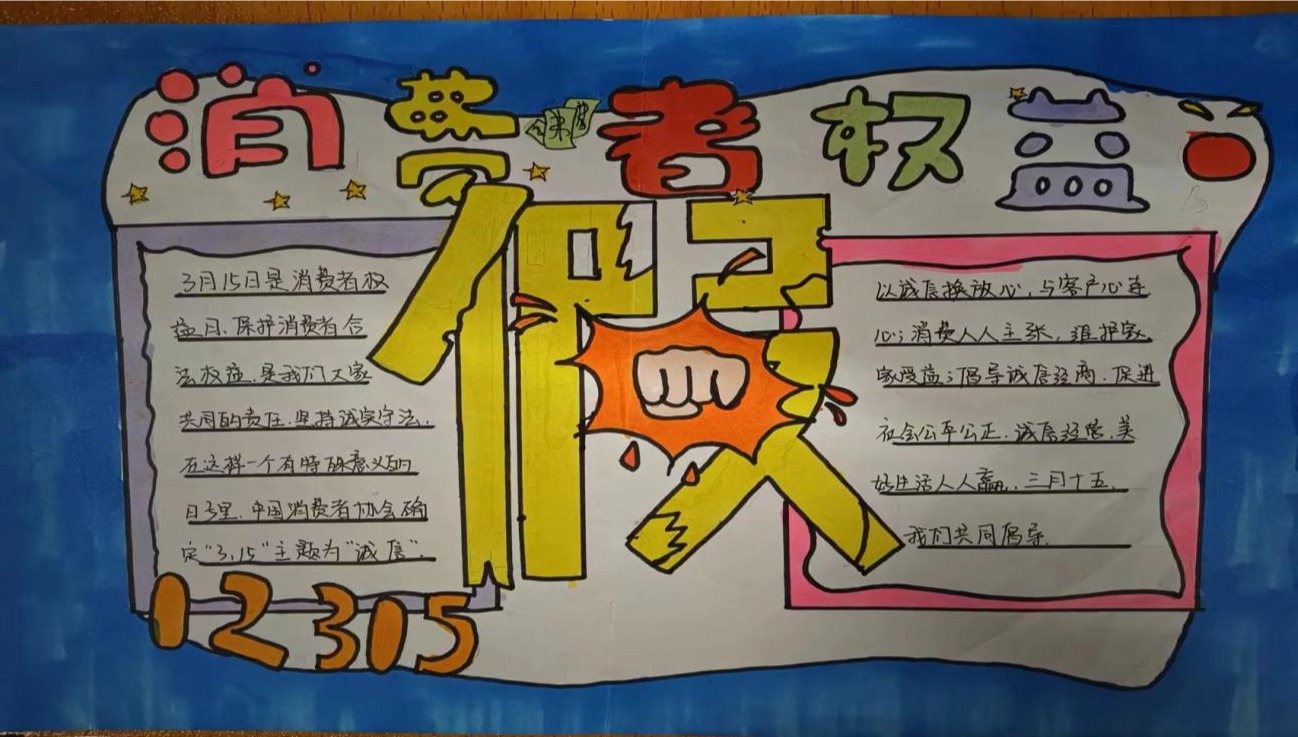 消费者权益
假
3月15日是消费者权
益日.保护消费者合
法权益.是我们大家
共同的责任.坚持诚实守法.
在这样一个有特殊意义的
日子里.中国消费者协会确
定“3.15”主题为“诚信”.
12315
以诚信换放心,与客户心连
心;消费人人主张,维护家
家受益;倡导诚信经商.促进
社会公平公正.诚信经营.美
好生活人人赢.三月十五.
我们共同倡导.